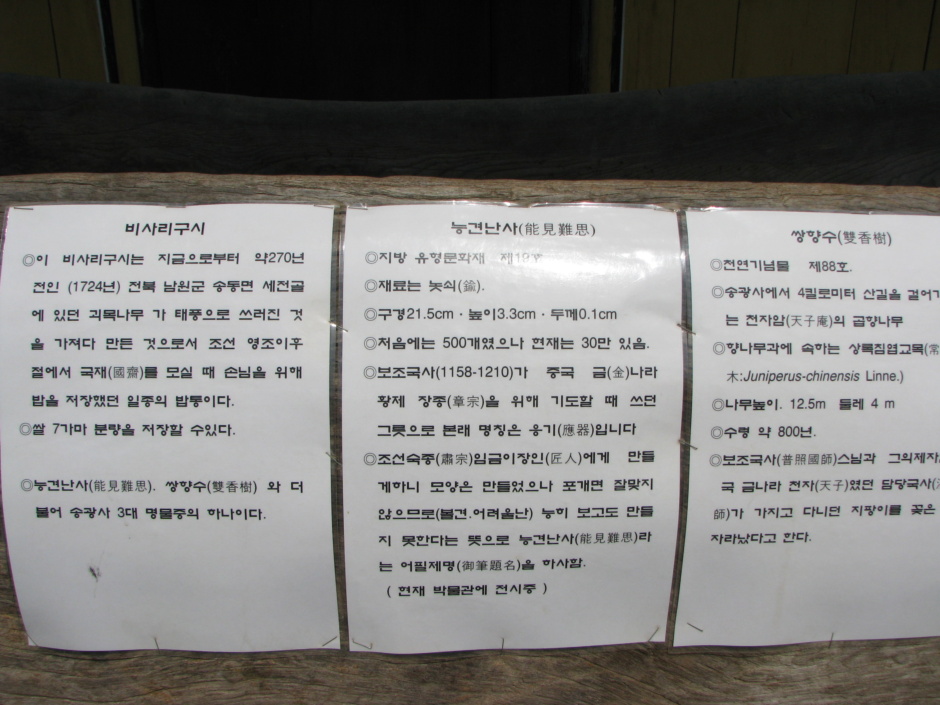 비사리구시
◎이 비사리구시는 지금으로부터 약270년
전인 (1724년) 전북 남원군 송동면 세전골
에 있던 괴목나무 가 태풍으로 쓰러진 것
을 가져다 만든 것으로서 조선 영조이후
절에서 국재(國齋)를 모실 때 손님을 위해
밥을 저장했던 일종의 밥통이다.
◎쌀 7가마 분량을 저장할 수있다.
◎능견난사(能見難思). 쌍향수(雙香樹) 와 더
불어 송광사 3대 명물중의 하나이다.
능견난사(能見難思)
◎지방 유형문화재 제19호
◎재료는 놋쇠(鍮).
◎구경21.5cm · 높이3.3cm · 두께0.1cm
◎처음에는 500개였으나 현재는 30만 있음.
◎보조국사(1158-1210)가 중국 금(金)나라
황제 장종(章宗)을 위해 기도할 때 쓰던
그릇으로 본래 명칭은 응기(應器)입니다
◎조선숙종(肅宗)임금이장인(匠人)에게 만들
게하니 모양은 만들었으나 포개면 잘맞지
않으므로(볼견.어려울난) 능히 보고도 만들
지 못한다는 뜻으로 능견난사(能見難思)라
는 어필제명(御筆題名)을 하사함.
( 현재 박물관에 전시중 )
쌍향수(雙香樹)
◎천연기념물 제88호.
◎송광사에서 4킬로미터 산길을 걸어
는 천자암(天子庵)의 곱향나무
◎향나무과에 속하는 상록침엽교목(常
木:Juniperus-chinensis Linne.)
◎나무높이. 12.5m 둘레 4 m
◎수령 약 800년.
◎보조국사(普照國師)스님과 그의제자
국 금나라 천자(天子)였던 담당국사(
師)가 가지고 다니던 지팡이를 꽂은
자라났다고 한다.